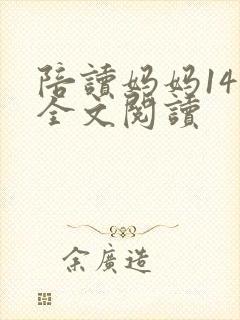 陪讀妈妈14
全文閱讀
余廣造